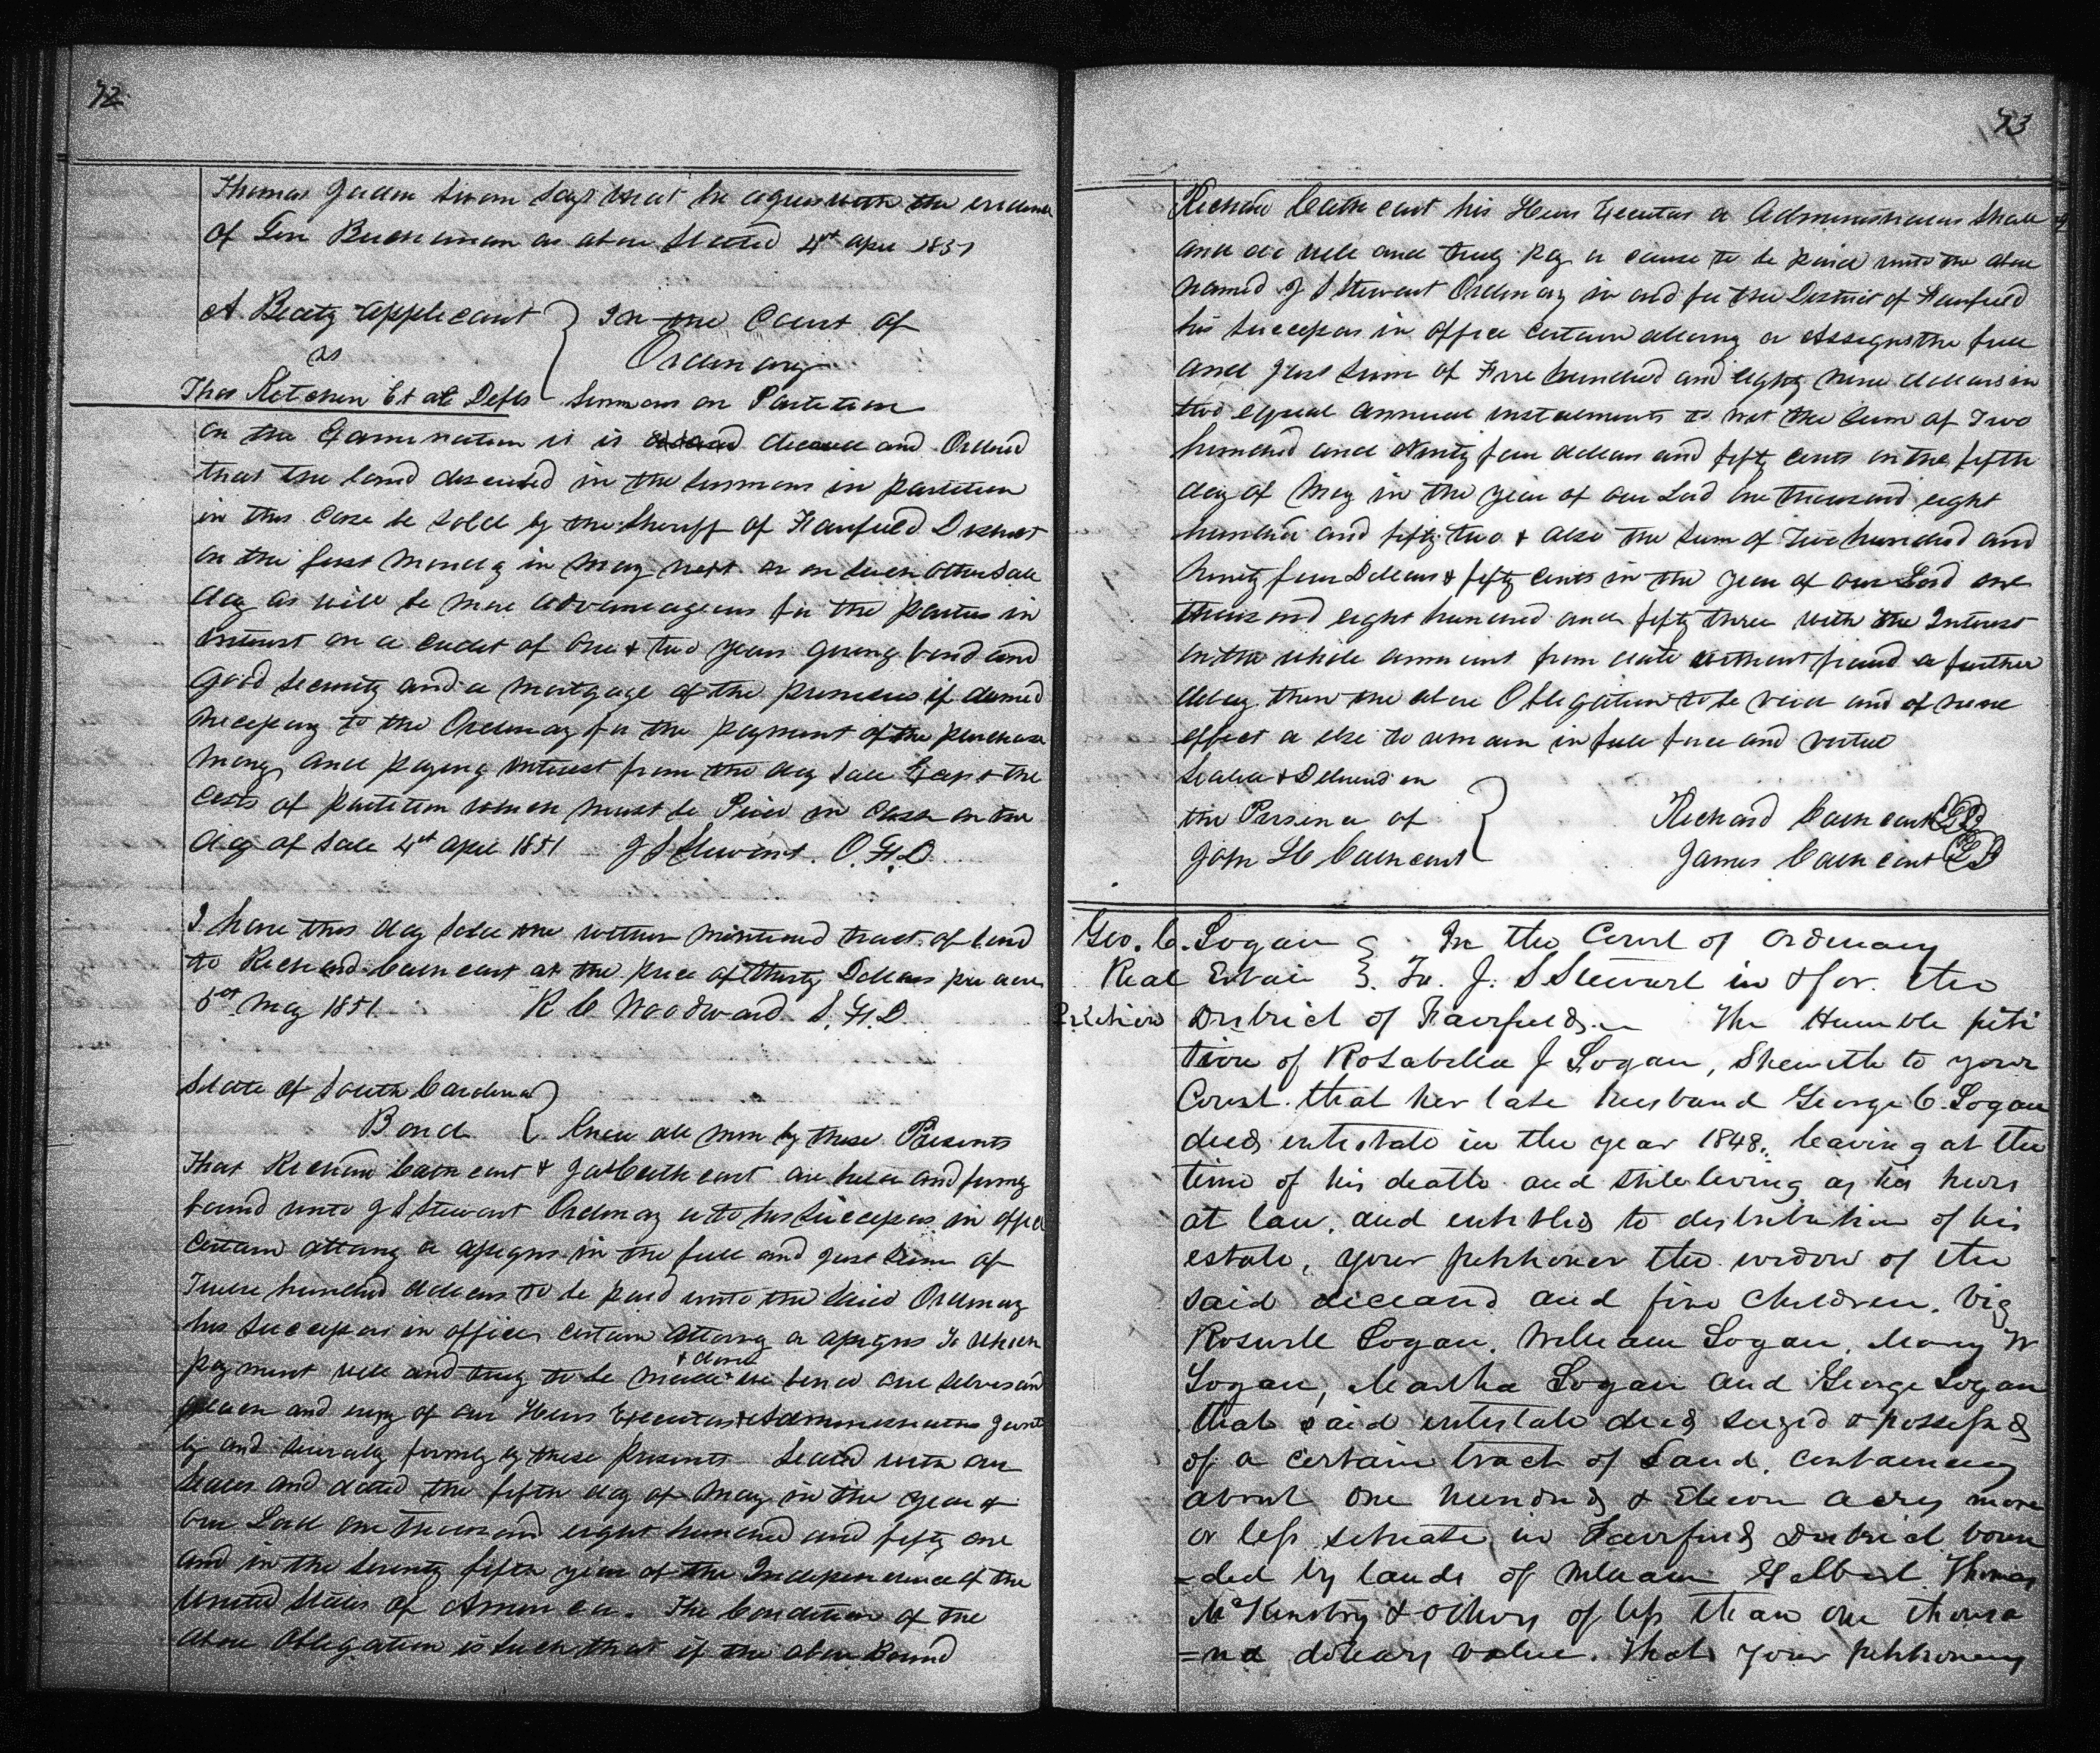 72
Thomas Jordan sworn says that he agrees with the evidence
of Gen Buchanan as above stated 4st Apre 1851
A Beaty Applicant } In the Court of
vs Ordinary
Thos Ketchen Et al Defts Summons on Partition
On the Examination it is decreed and Ordered
that the land described in the summons in partition
in this case be sold by the Sheriff of Fairfield District
on the first Monday in May next or on such other Sale
day as will be more advantageous for the parties in
interest on a credit of one & two years giving bond and
good security and a mortgage of the premises if deemed
necessary to the Ordinary for the payment of the purchase
money and paying interest from the day sale Except the
costs of partition which must be Paid in Cash on the
day of Sale 4st Apre 1851 J S Stewart. O.F.D.
I have this day sold the within mentioned tract of land
to Richard Cathcart at the price of thirty Dollars per acre
5st May 1851 R C Woodward S.F.D.
State of South Carolina }
Bond { Know all men by these Presents
That Richard Cathcart & Jas Cathcart are held and firmly
bound unto J S Stewart Ordinary & to his Successors in office
certain attorney or assigns in the full and just sum of
Twelve hundred dollars to be paid unto the said Ordinary
his successors in office certain attorney or assigns To which
payment well and truly to be made & done we bind our selves and
each and every of our Heirs Executors & Administrators joint
ly and severally firmly by these presents Sealed with our
Seales and dated the fifth day of May in the year of
our Lord one thousand eight hundred and fifty one
and in the seventy fifth year of the Independence of the
United States of America. The Condition of the
above Obligation is such that if the above Bound
73
Richard Cathcart his Heirs Executors or Administrators shall
and do well and truly Pay or cause to be paid unto the above
named J S Stewart Ordinary in and for the District of Fairfield
his successors in office certain attorney or Assigns the full
and just sum of Five hundred and eighty nine dollars in
two equal annual instalments to wit the sum of Two
hundred and Ninety four dollars and fifty cents on the fifth
day of May in the year of our Lord one thousand eight
hundred and fifty two & also the sum of Two hundred and
Ninety four Dollars & fifty cents in the year of our Lord one
thousand eight hundred and fifty three with the Interest
on the whole amount from date without fraud or further
delay then the above Obligation to be void and of none
effect or else to remain in full force and virtue
Sealed & Delivered in
the Presence of } Richard Cathcart LS
John H Cathcart James Cathcart LS
Geo. C. Logan } In the Court of Ordinary
Real Estate }. To. J. S Stewart in & for. the
Petition District of Fairfield. The Humble peti
tion of Rosabella J Logan, Sheweth to your
Court. that her late husband George C. Logan
died intestate in the year 1848. leaving at the
time of his death and still living as his heirs
at law, and entitled to distribution of his
estate, your petitioner the widow of the
said deceased and five children. Viz
Roswell Logan, William Logan, Mary W
Logan, Martha Logan and George Logan
that said intestate died seized & possessed
of a certain tract of Land. containing
about one hundred & Eleven acres more
or less situate in Fairfield District boun
=ded by lands of William Gelbert Thomas
McKinstry & others of less than one thousa
=nd dollars value. That your petitioners